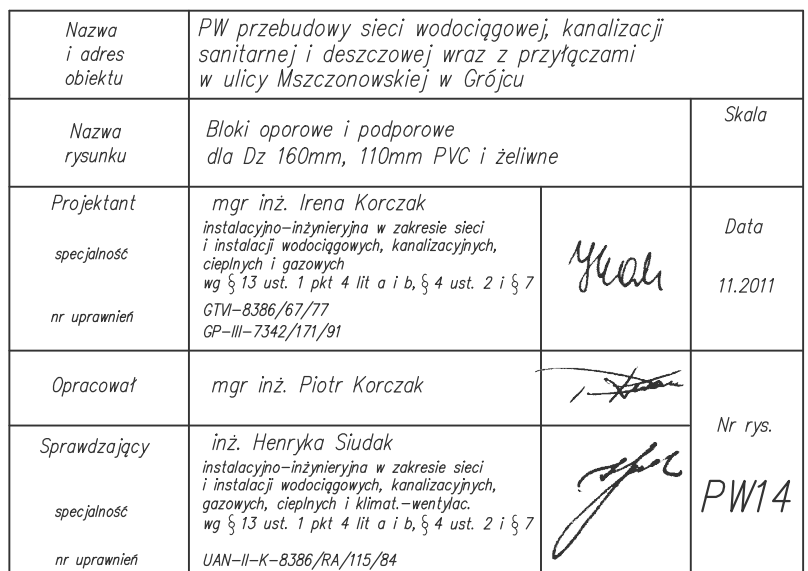 Nazwa
i adres
obiektu
PW przebudowy sieci wodociągowej, kanalizacji
sanitarnej i deszczowej wraz z przyłączami
w ulicy Mszczonowskiej w Grójcu
Nazwa
rysunku
Bloki oporowe i podporowe
dla Dz 160mm, 110mm PVC i żeliwne
Skala
Projektant
specjalność
nr uprawnień
mgr inż. Irena Korczak
instalacyjno-inżynieryjna w zakresie sieci
i instalacji wodociągowych, kanalizacyjnych,
cieplnych i gazowych
wg § 13 ust. 1 pkt 4 lit a i b, § 4 ust. 2 i § 7
GTVI-8386/67/77
GP-III-7342/171/91
Data
11.2011
Opracował
mgr inż. Piotr Korczak
Sprawdzający
specjalność
nr uprawnień
inż. Henryka Siudak
instalacyjno-inżynieryjna w zakresie sieci
i instalacji wodociągowych, kanalizacyjnych,
gazowych, cieplnych i klimat.-wentylac.
wg § 13 ust. 1 pkt 4 lit a i b, § 4 ust. 2 i § 7
UAN-II-K-8386/RA/115/84
Nr rys.
PW14